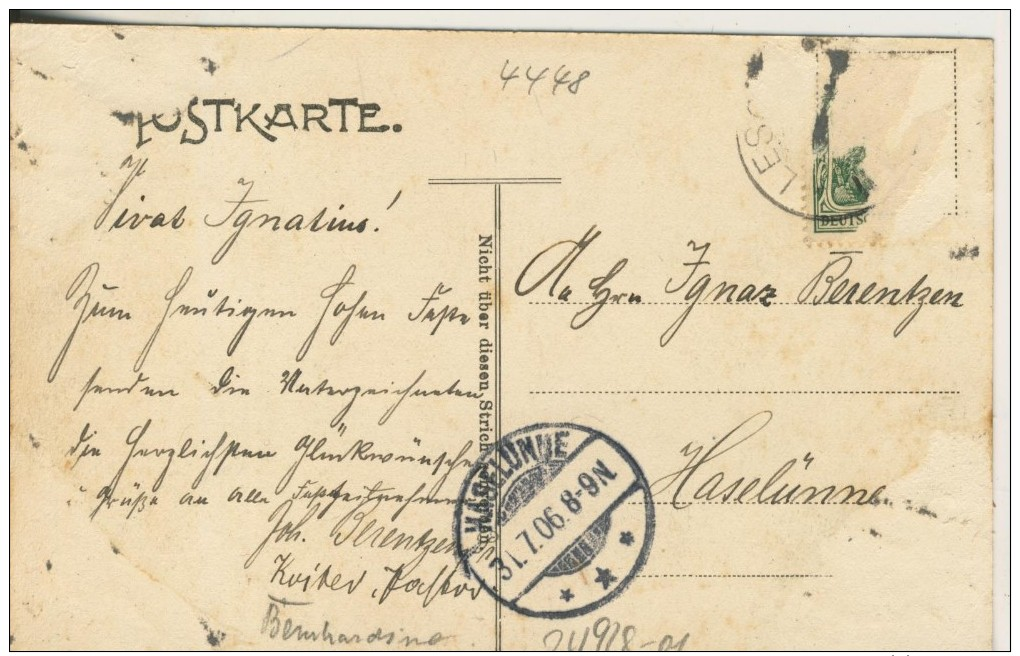 4448
POSTKARTE.
LES
DEUTSC
Vivat Ignatius!
Zum heutigen hohen Feste
senden die Unterzeichneten
die herzlichsten Glückwünsche
u Grüße an alle Festteilnehmer
Joh. Berentzen
Pastor
Bernhardine
Nicht über diesen Strich
An Hrn Ignaz Berentzen
Haselünne.
HASELÜNNE
31.7.06.8-9N.
24928-01